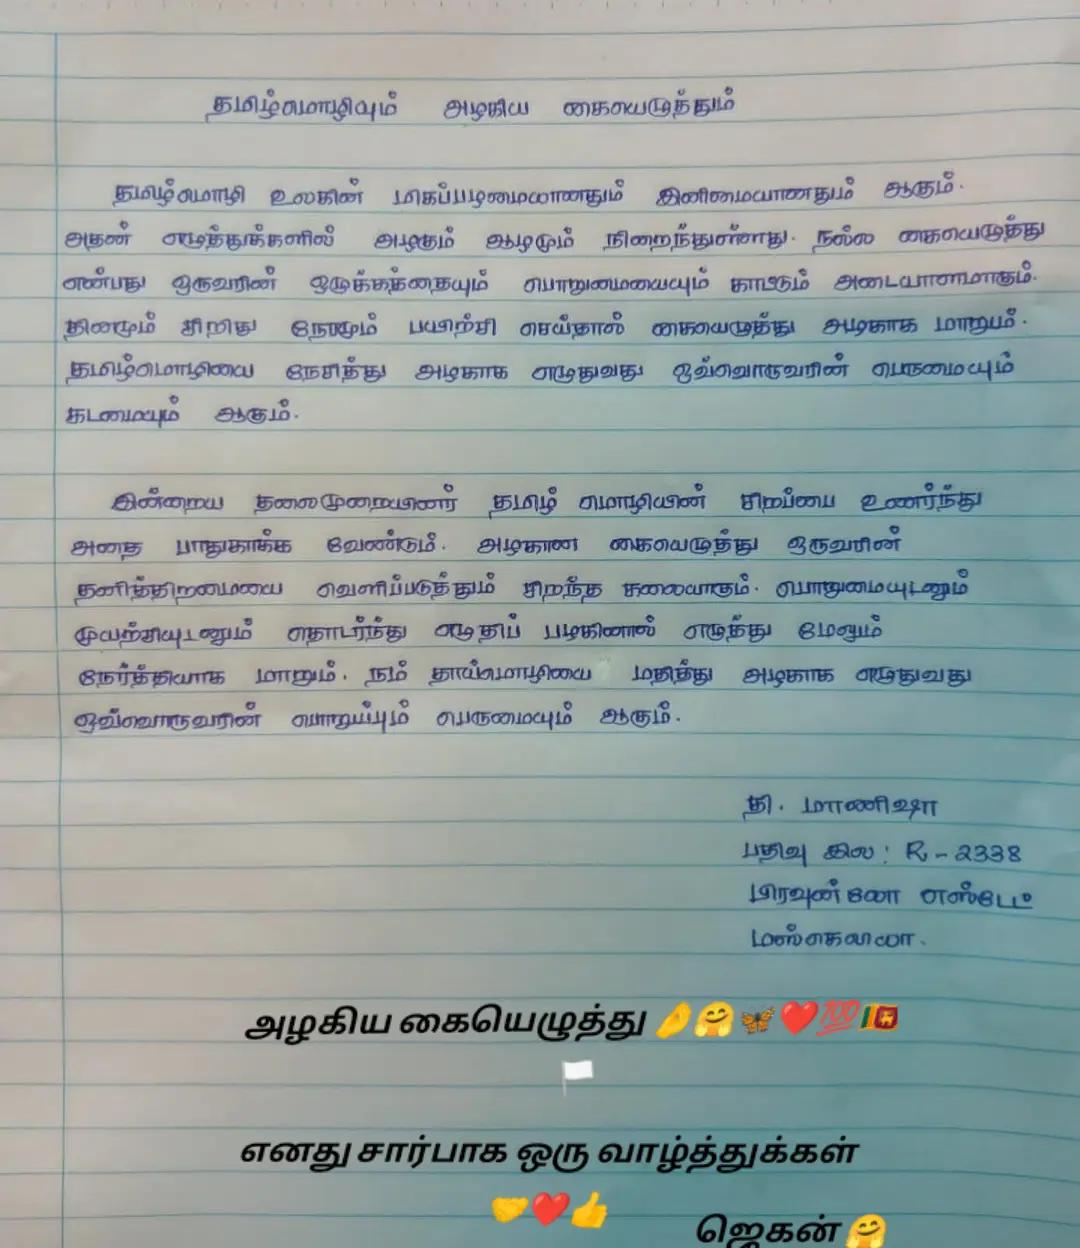 தமிழ்மொழியும் அழகிய கையெழுத்தும்
தமிழ்மொழி உலகின் மிகப்பழமையானதும் இனிமையானதும் ஆகும்.
அதன் எழுத்துக்களில் அழகும் ஆழமும் நிறைந்துள்ளது. நல்ல கையெழுத்து
என்பது ஒருவரின் ஒழுக்கத்தையும் பொறுமையையும் காட்டும் அடையாளமாகும்.
தினமும் சிறிது நேரமும் பயிற்சி செய்தால் கையெழுத்து அழகாக மாறும்.
தமிழ்மொழியை நேசித்து அழகாக எழுதுவது ஒவ்வொருவரின் பெருமையும்
கடமையும் ஆகும்.
இன்றைய தலைமுறையினர் தமிழ் மொழியின் சிறப்பை உணர்ந்து
அதை பாதுகாக்க வேண்டும். அழகான கையெழுத்து ஒருவரின்
தனித்திறமையை வெளிப்படுத்தும் சிறந்த கலையாகும். பொறுமையுடனும்
முயற்சியுடனும் தொடர்ந்து எழுதிப் பழகினால் எழுத்து மேலும்
நேர்த்தியாக மாறும். நம் தாய்மொழியை மதித்து அழகாக எழுதுவது
ஒவ்வொருவரின் பொறுப்பும் பெருமையும் ஆகும்.
தி. மாணிஷா
பதிவு இல: R-2338
பிரவுன்லோ எஸ்டேட்
மஸ்கெலியா.
அழகிய கையெழுத்து 🤌🤗🦋❤️💯🇱🇰
🏳️
எனது சார்பாக ஒரு வாழ்த்துக்கள்
🤝❤️👍
ஜெகன் 🤗